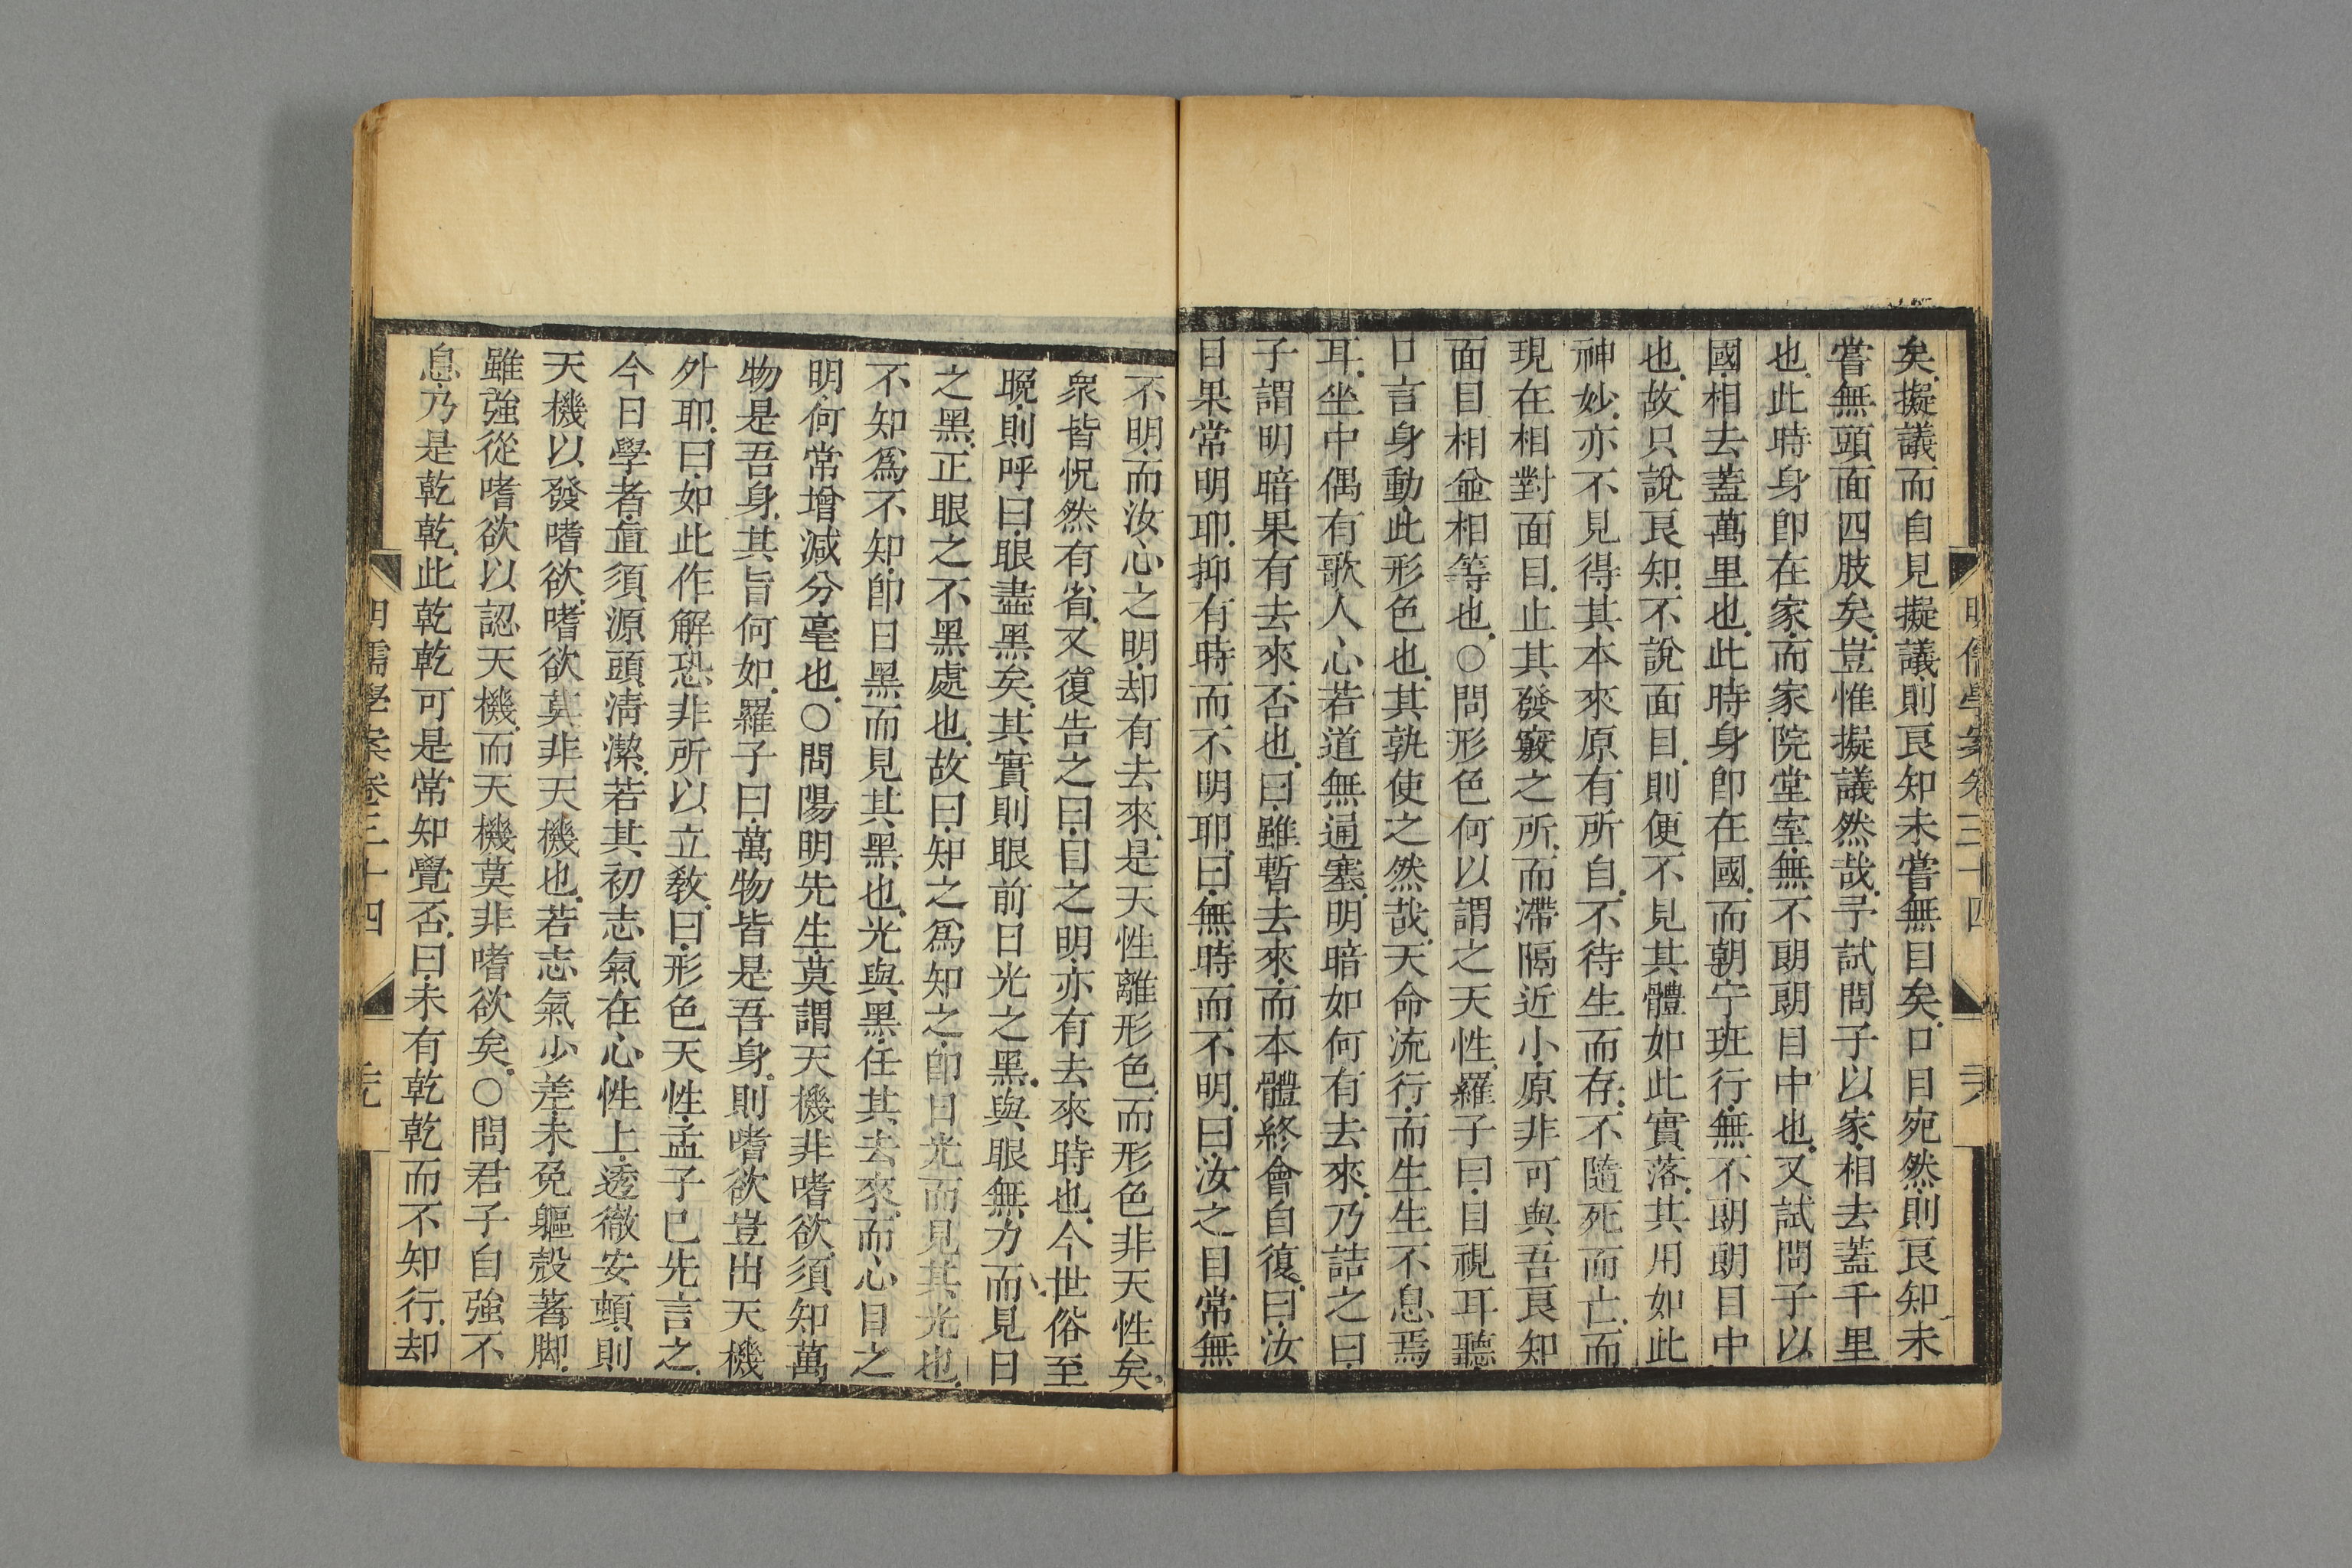 明儒學案卷三十四
矣擬議而自見擬議則良知未嘗無目矣口目宛然則良知未
嘗無頭面四肢矣豈惟擬議然哉予試問子以家相去蓋千里
也此時身卽在家而家院堂室無不朗朗目中也又試問子以
國相去蓋萬里也此時身卽在國而朝宁班行無不朗朗目中
也故只說良知不說面目則便不見其體如此實落其用如此
神妙亦不見得其本來原有所自不待生而存不隨死而亡而
現在相對面目止其發竅之所而滯隔近小原非可與吾良知
面目相並相等也○問形色何以謂之天性羅子曰目視耳聽
口言身動此形色也其孰使之然哉天命流行而生生不息焉
耳坐中偶有歌人心若道無通塞明暗如何有去來乃詰之曰
子謂明暗果有去來否也曰雖暫去來而本體終會自復曰汝
目果常明耶抑有時而不明耶曰無時而不明曰汝之目常無
不明而汝心之明却有去來是天性離形色而形色非天性矣
衆皆怳然有省又復告之曰目之明亦有去來時也今世俗至
晚則呼曰眼盡黑矣其實則眼前日光之黑與眼無力而見日
之黑正眼之不黑處也故曰知之爲知之卽日光而見其光也
不知爲不知卽日黑而見其黑也光與黑任其去來而心目之
明何常增減分毫也○問陽明先生莫謂天機非嗜欲須知萬
物是吾身其旨何如羅子曰萬物皆是吾身則嗜欲豈出天機
外耶曰如此作解恐非所以立敎曰形色天性孟子已先言之
今日學者直須源頭淸潔若其初志氣在心性上透徹安頓則
天機以發嗜欲嗜欲莫非天機也若志氣少差未免軀殼著脚
雖強從嗜欲以認天機而天機莫非嗜欲矣○問君子自強不
息乃是乾乾此乾乾可是常知覺否曰未有乾乾而不知行却
明儒學案卷三十四